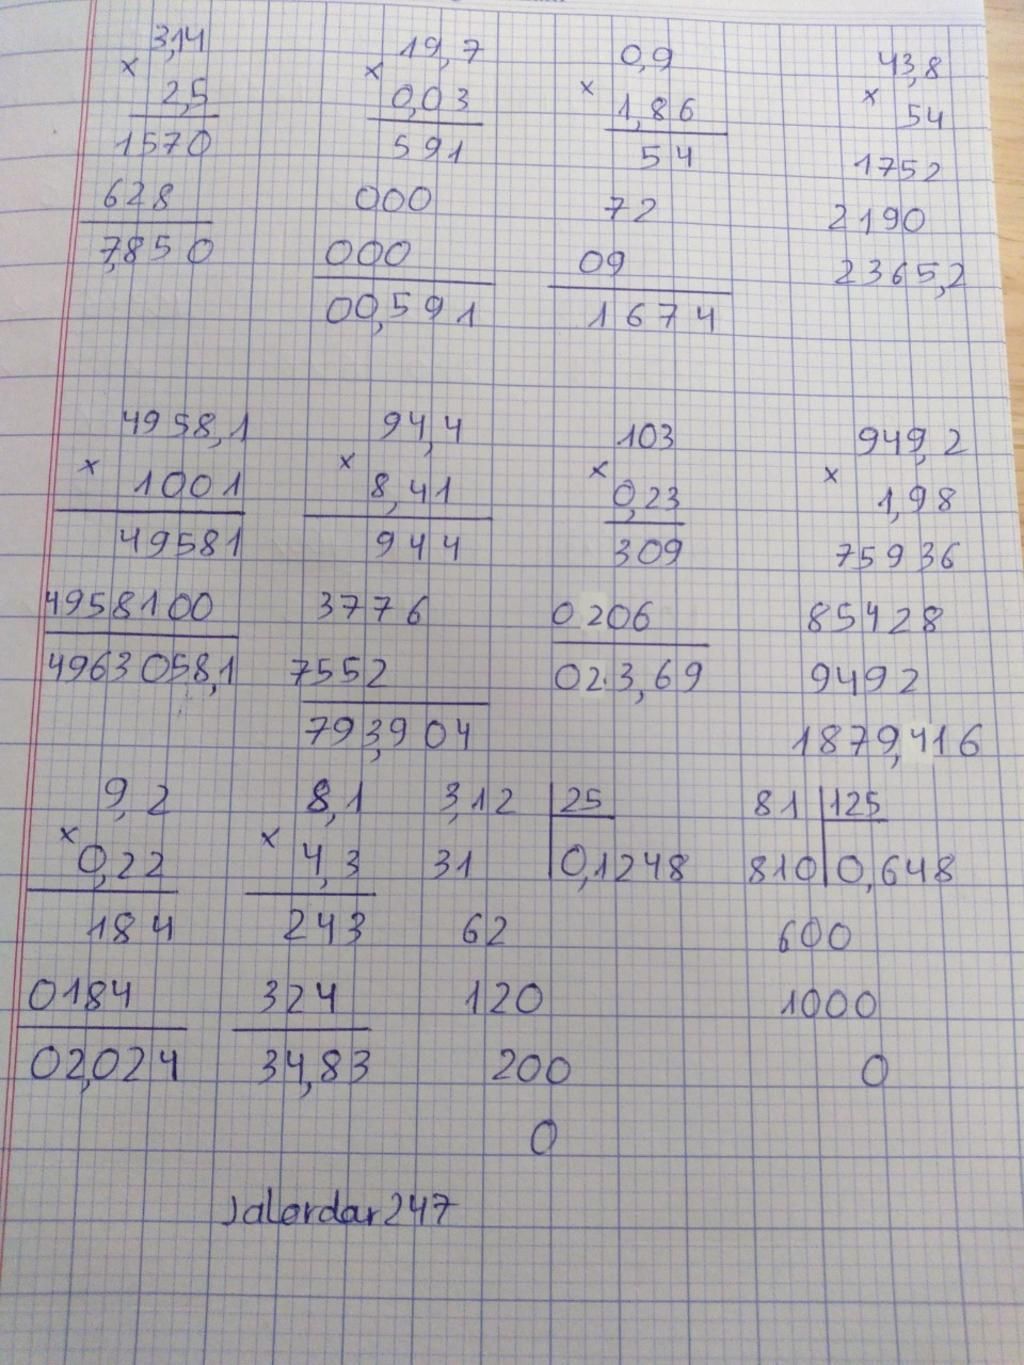 3,14 19,7 0,9 43,8
× 2,5 × 0,03 × 1,86 × 54
1570 591 54 1752
628 000 72 2190
7,850 000 09 2365,2
00,591 1674
4958,1 94,4 103 949,2
× 1001 × 8,41 × 0,23 × 1,98
49581 944 309 75936
4958100 3776 0206 85428
4963058,1 7552 023,69 9492
793,904 1879,416
9,2 8,1 3,12 25 81 125
× 0,22 × 4,3 31 0,1248 810 0,648
184 243 62 600
0184 324 120 1000
02,024 34,83 200 0
0
Jalordar247